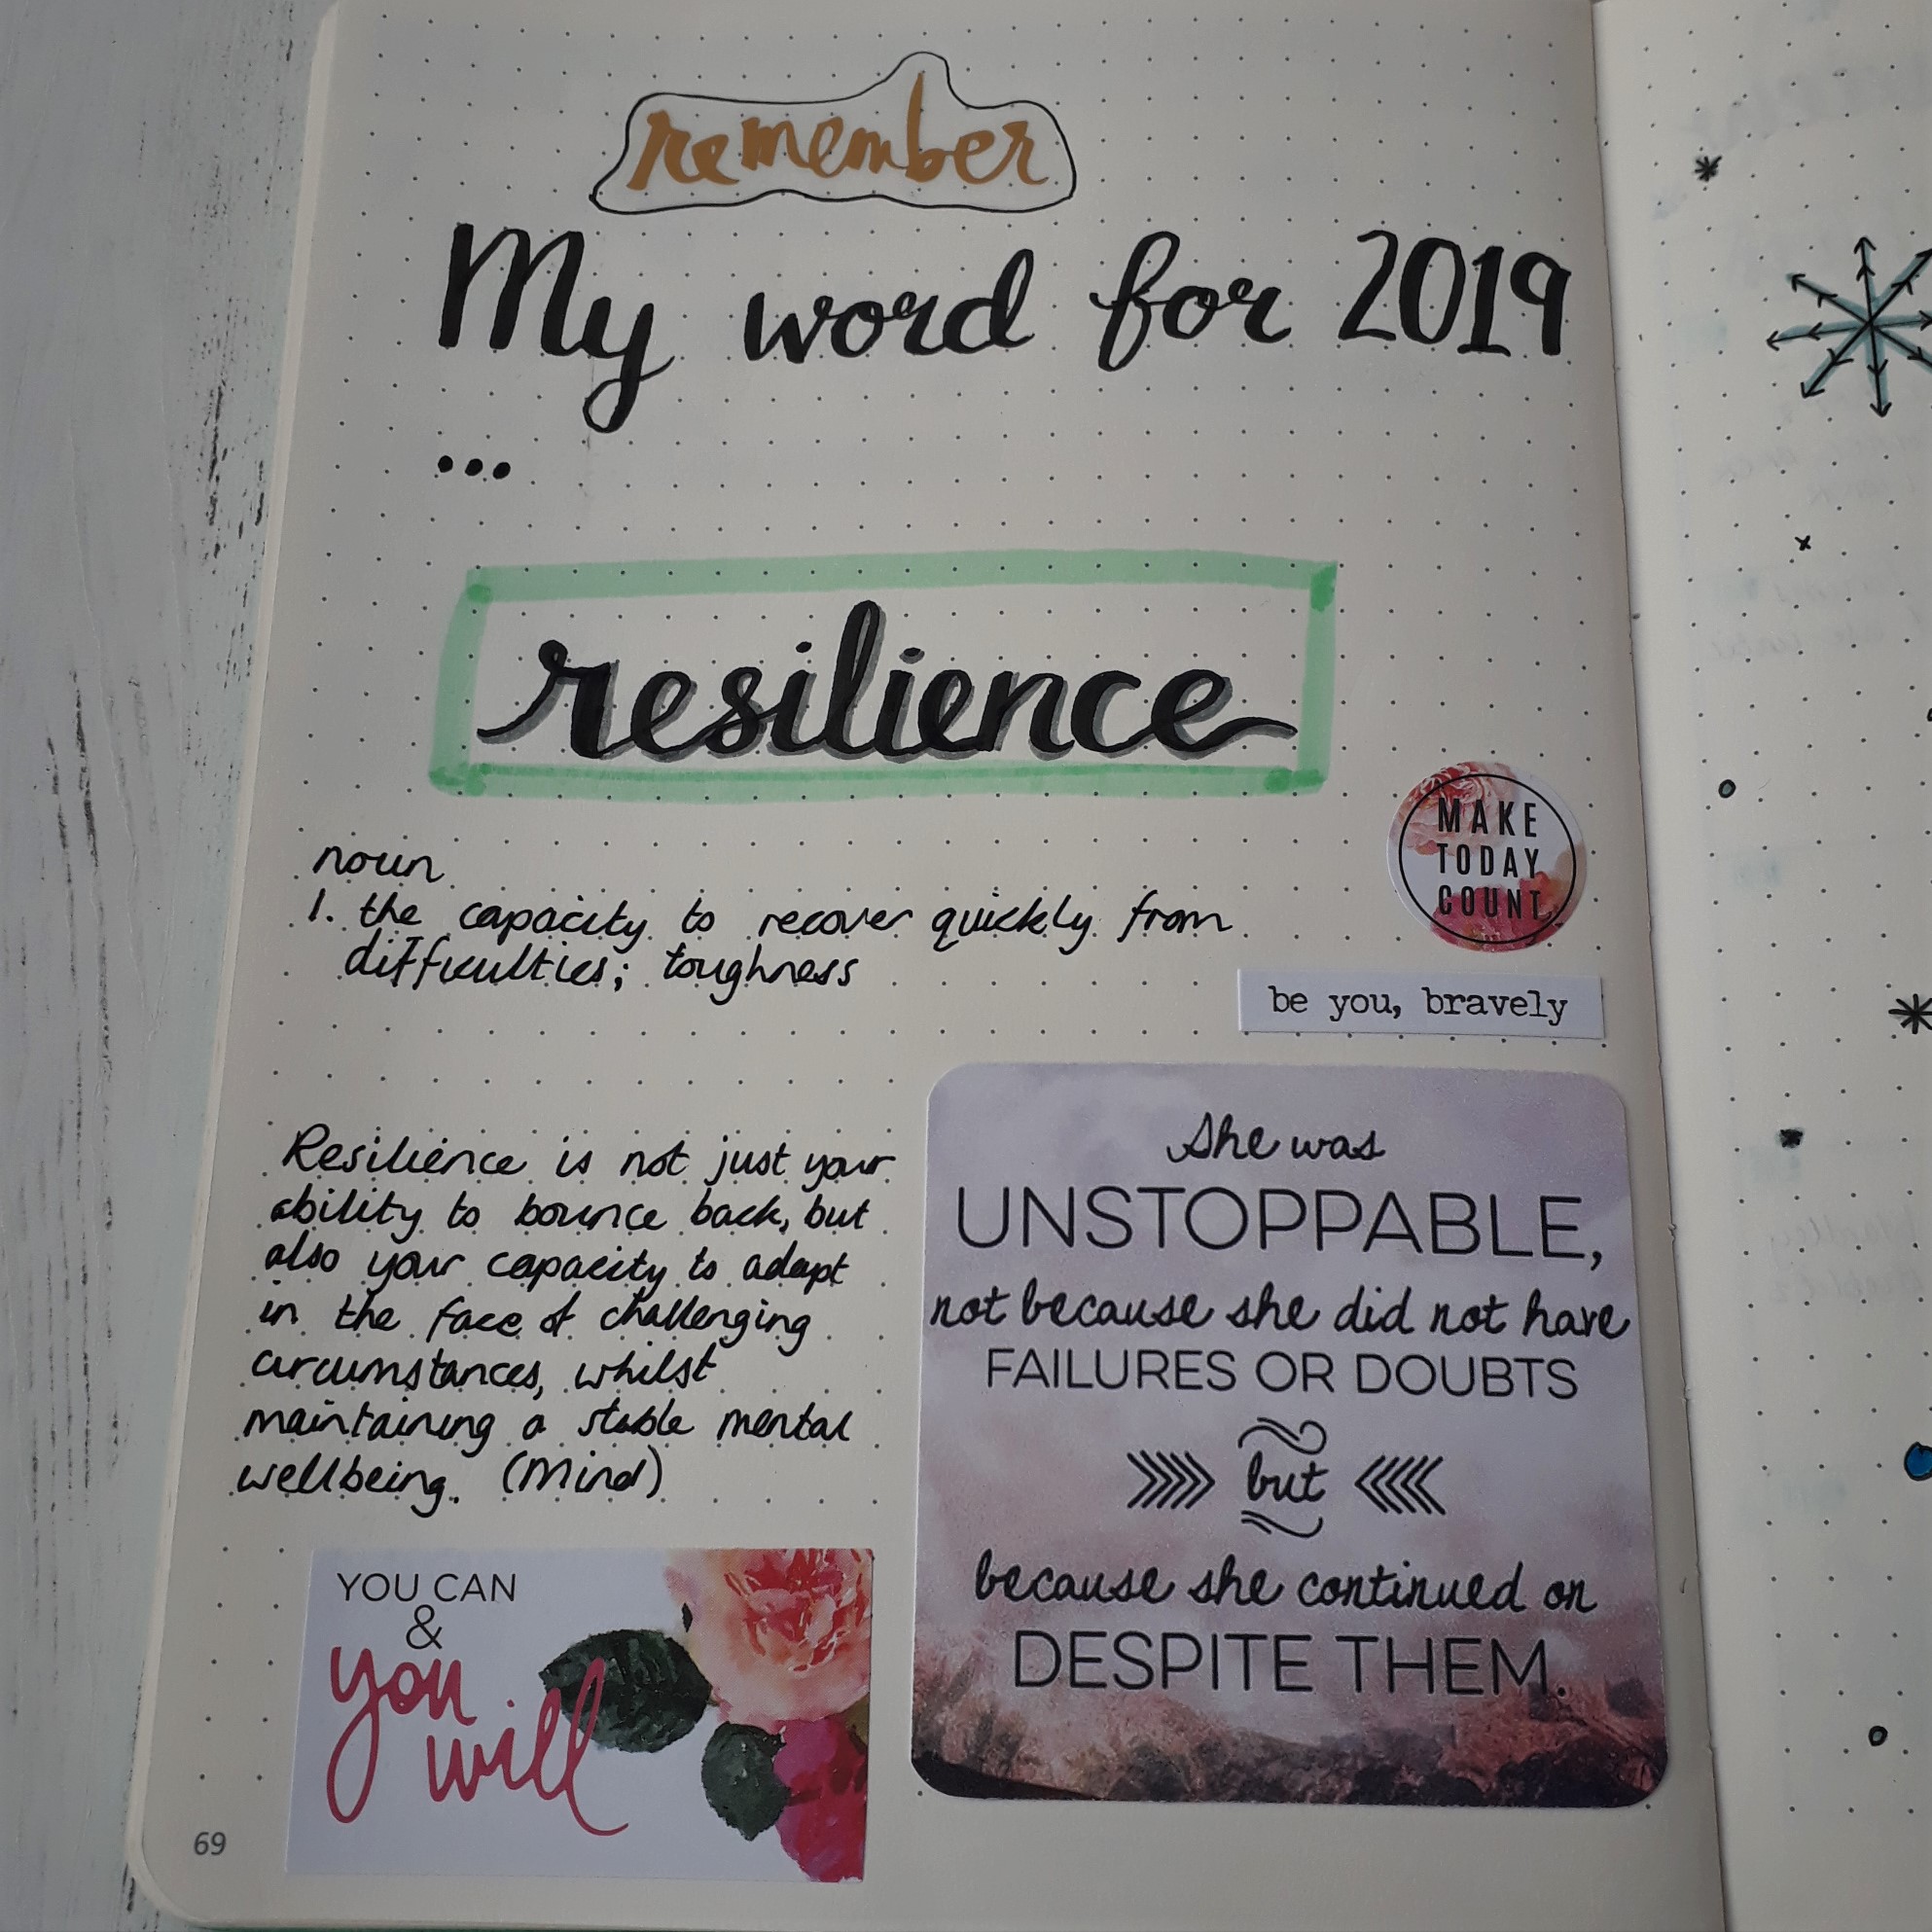 remember
My word for 2019
...
resilience
noun
1. the capacity to recover quickly from
difficulties; toughness
MAKE
TODAY
COUNT
be you, bravely
Resilience is not just your
ability to bounce back, but
also your capacity to adapt
in the face of challenging
circumstances, whilst
maintaining a stable mental
wellbeing. (Mind)
She was
UNSTOPPABLE,
not because she did not have
FAILURES OR DOUBTS
but
because she continued on
DESPITE THEM.
YOU CAN
&
you
will
69